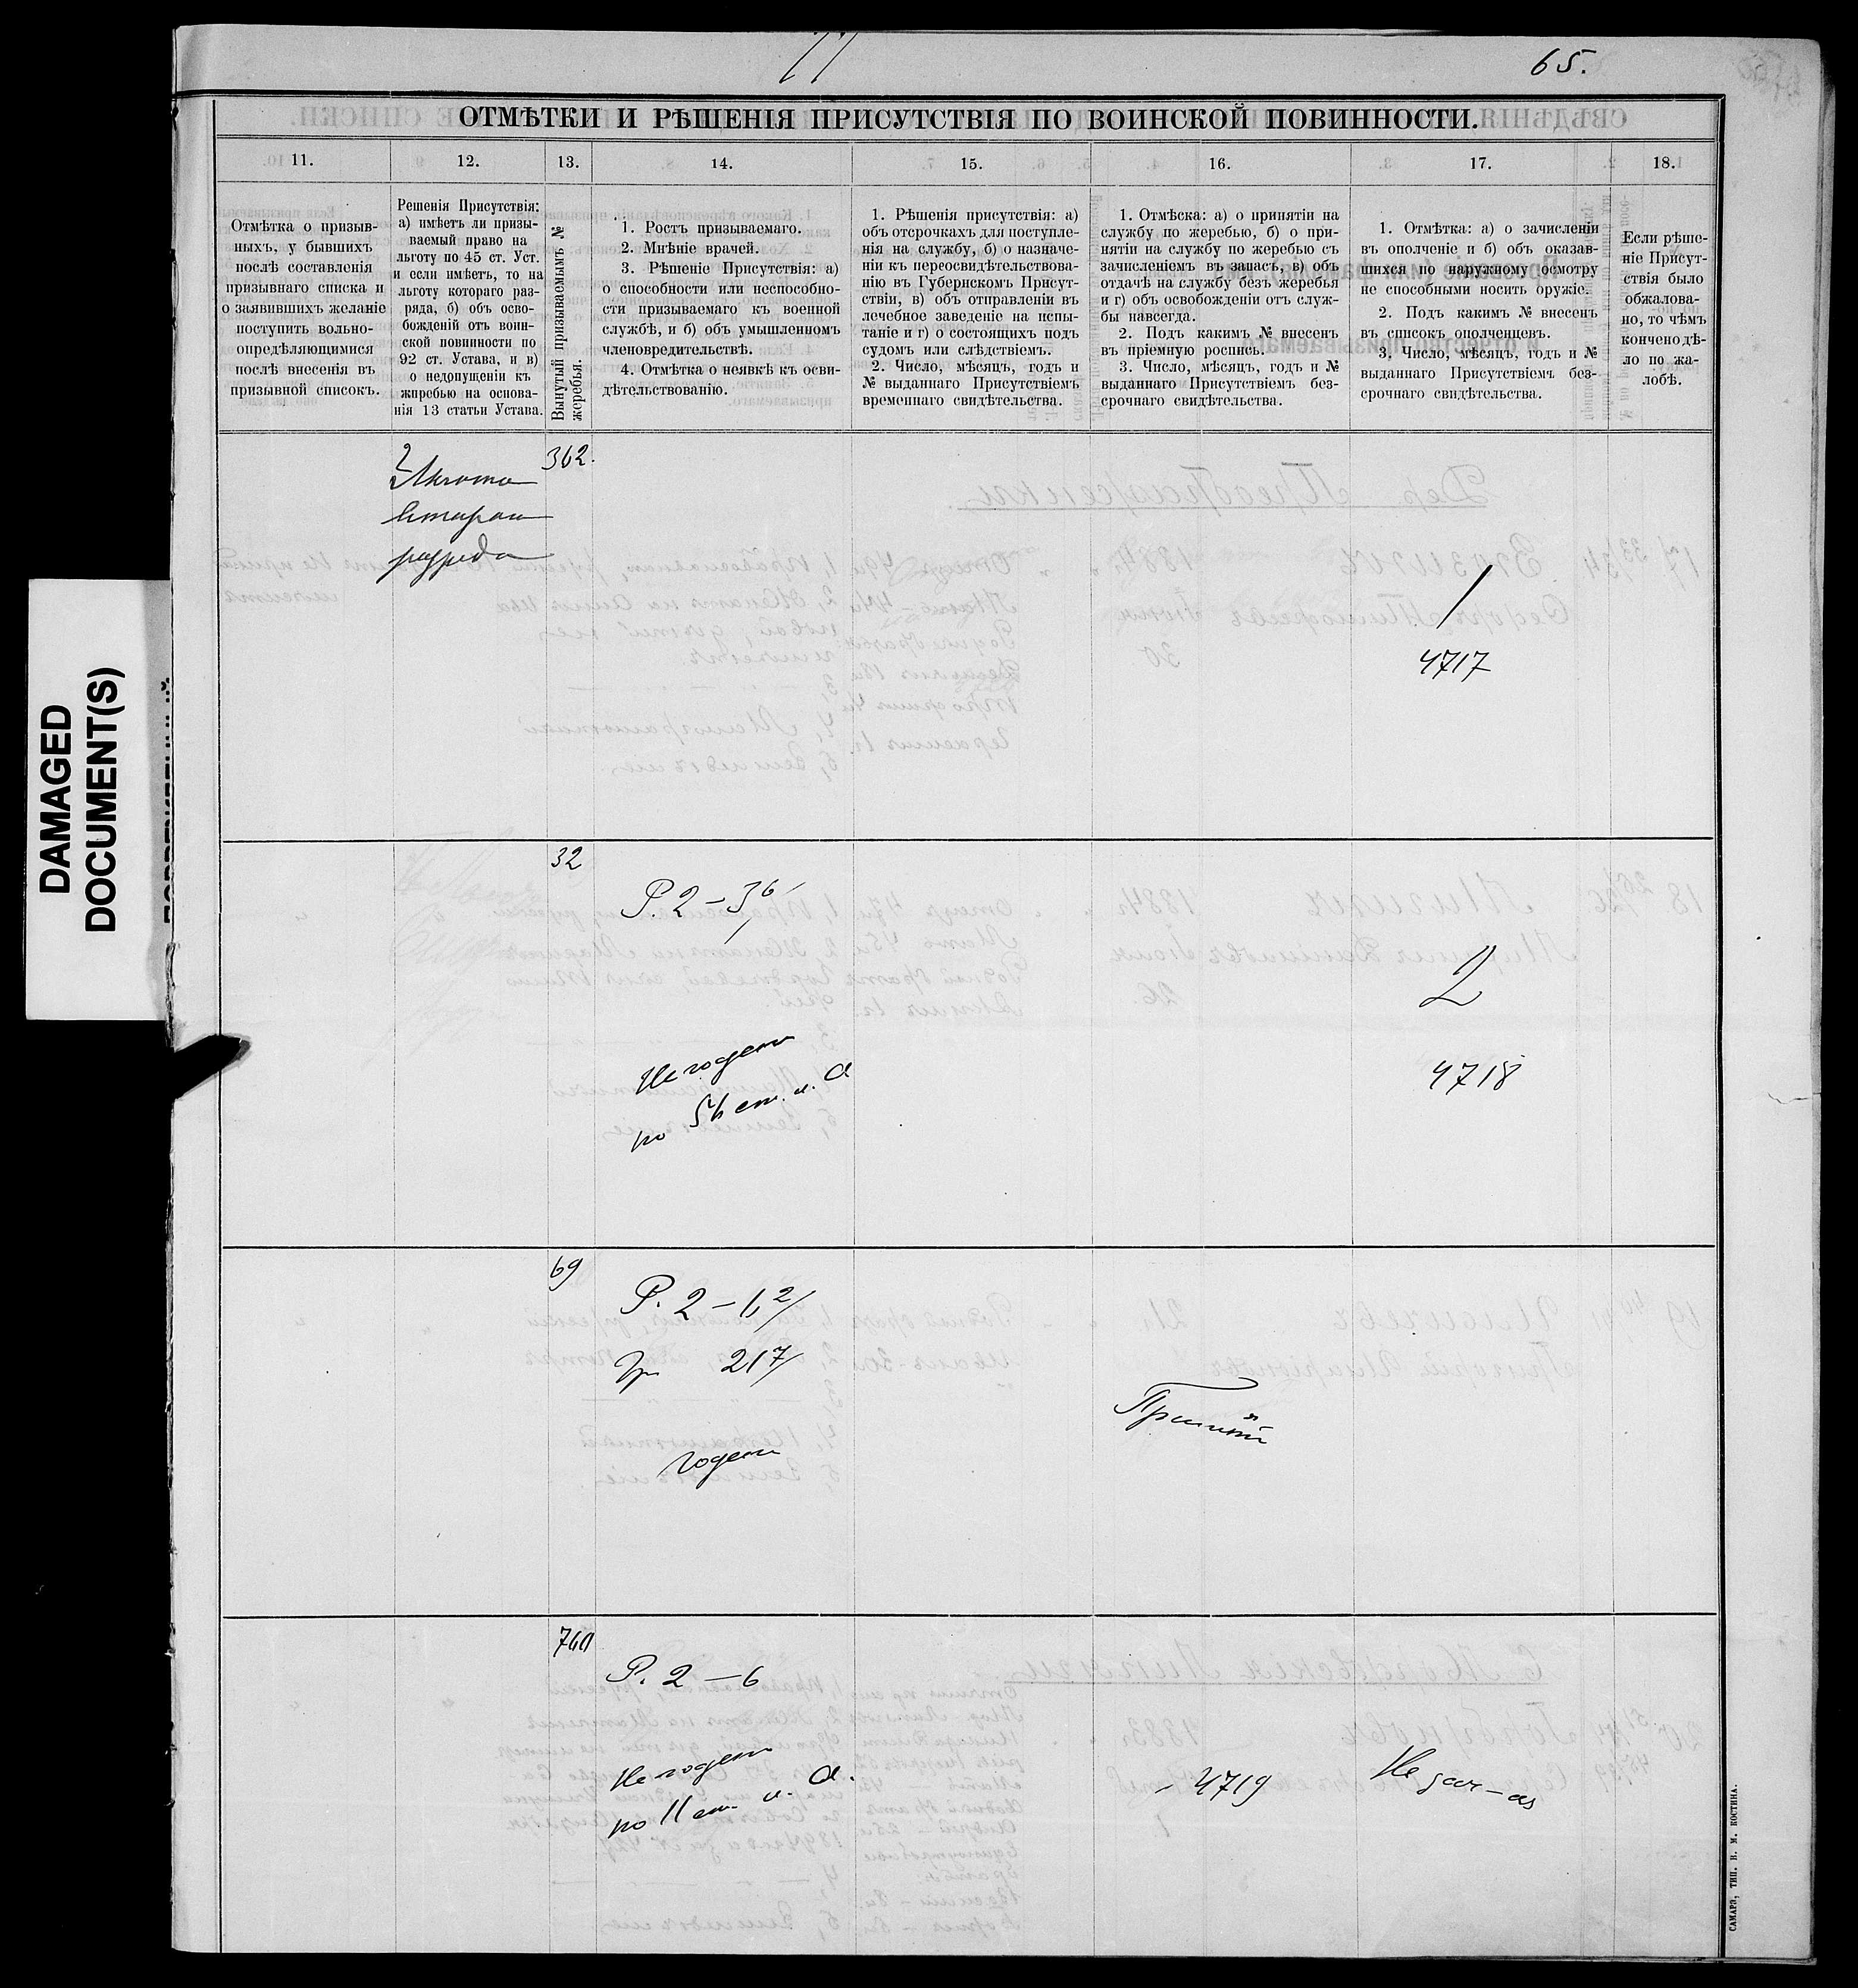 65.
ОТМѢТКИ И РѢШЕНІЯ ПРИСУТСТВІЯ ПО ВОИНСКОЙ ПОВИННОСТИ.
11.
12.
13.
14.
15.
16.
17.
18.
Отмѣтка о призыв-
ныхъ, у бывшихъ
послѣ составленія
призывнаго списка и
о заявившихъ желаніе
поступить вольно-
опредѣляющимися
послѣ внесенія въ
призывной списокъ.
Решенія Присутствія:
а) имѣетъ ли призы-
ваемый право на
льготу по 45 ст. Уст.
и если имѣетъ, то на
льготу котораго раз-
ряда, б) объ осво-
божденій отъ воин-
ской повинности по
92 ст. Устава, и в)
о недопущеніи къ
жпребью на основа-
нія 13 статьи Устава.
Вынутый призываемымъ №
жеребья.
1. Ростъ призываемаго.
2. Мнѣніе врачей.
3. Рѣшеніе Присутствія: а)
о способности или неспособно-
сти призываемаго къ военной
службѣ, и б) объ умышленномъ
членовредительствѣ.
4. Отмѣтка о неявкѣ къ осви-
дѣтельствованію.
1. Рѣшенія присутствія: а)
объ отсрочкахъ для поступле-
нія на службу, б) о назначе-
ніи къ переосвидѣтельствова-
нію въ Губернскомъ Присут-
ствіи, в) объ отправленіи въ
лечебное заведеніе на испы-
таніе и г) о состоящихъ подъ
судомъ или слѣдствіемъ.
2. Число, мѣсяцъ, годъ и
№ выданнаго Присутствіемъ
временнаго свидѣтельства.
1. Отмѣска: а) о принятіи на
службу по жеребью, б) о при-
нятіи на службу по жеребью съ
зачисленіемъ въ запасъ, в) объ
отдачѣ на службу безъ жеребья
и г) объ освобожденіи отъ служ-
бы навсегда.
2. Подъ какимъ № внесенъ
въ пріемную роспись.
3. Число, мѣсяцъ, годъ и №
выданнаго Присутствіемъ без-
срочнаго свидѣтельства.
1. Отмѣтка: а) о зачисленіи
въ ополченіе и б) объ оказав-
шихся по наружному осмотру
не способными носить оружіе.
2. Подъ какимъ № внесенъ
въ списокъ ополченцевъ.
3. Число, мѣсяцъ, годъ и №
выданнаго Присутствіемъ без-
срочнаго свидѣтельства.
Если рѣше-
ніе Присут-
ствія было
обжалова-
но, то чѣмъ
кончено дѣ-
ло по жа-
лобѣ.
362.
Льгота
втораго
разряда
1
4717
32
Р. 2 – 3 6/
Негоденъ
по 56 ст. л. А
2
4718
69
Р. 2 – 6 2/
Гр 21 7/
Годенъ
Принятъ
760
Р. 2 – 6
Негоденъ
по 11 ст. л. А.
4719
Не зач–ся
САМАРА, ТИП. Н. М. КОСТИНА.
DAMAGED
DOCUMENT(S)